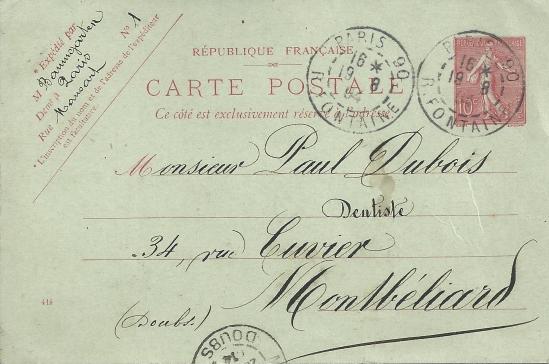 * Expédié par
M Baumgarten
Demt à Paris
Rue Mansart
N° 1
* L'inscription du nom et de l'adresse de l'expéditeur
est facultative.
RÉPUBLIQUE FRANÇAISE
CARTE POSTALE
Ce côté est exclusivement réservé à l'adresse
PARIS 90
16 *
19 8
04
R. FONTAINE
RÉPUBLIQUE FRANÇAISE
10c
PARIS 90
16 *
19 8
R. FONTAINE
Monsieur Paul Dubois
Dentiste
34, rue Cuvier
Montbéliard
(Doubs.)
418
DOUBS